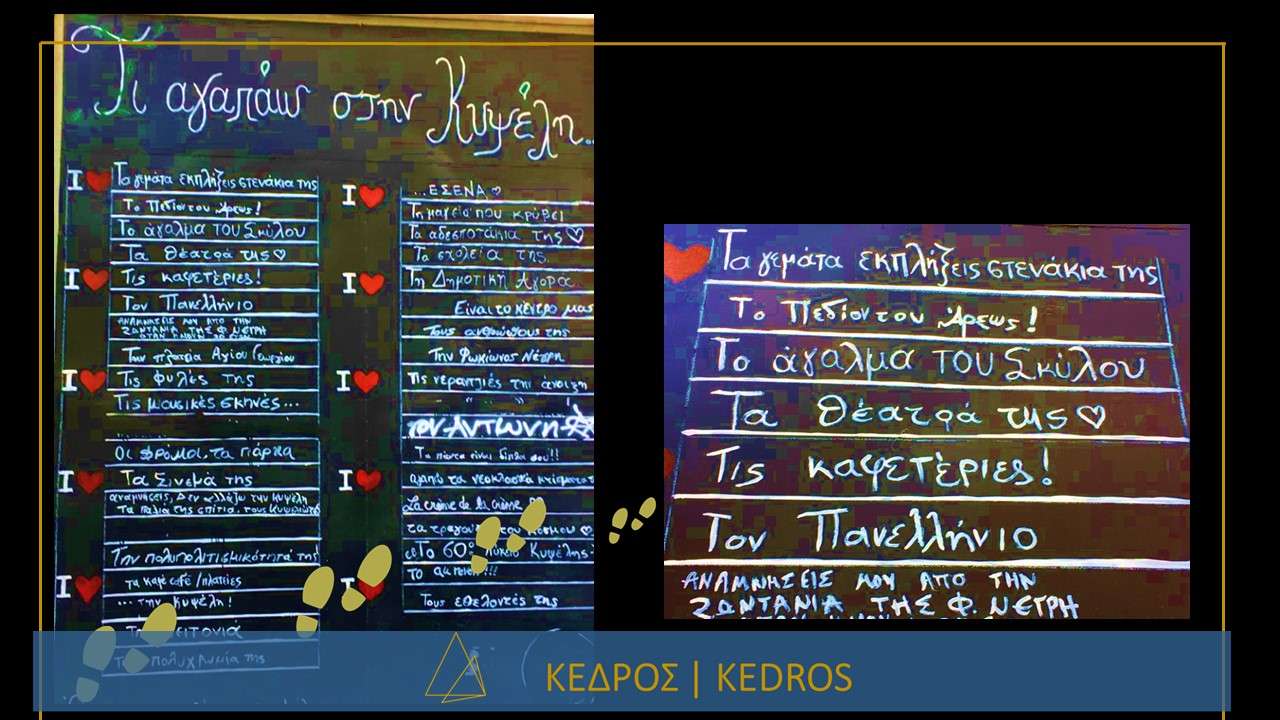 Τι αγαπάω στην Κυψέλη..
I
Τα γεμάτα εκπλήξεις στενάκια της
Το Πεδίον του Άρεως!
Το άγαλμα του Σκύλου
Τα Θέατρά της
I
Τις καφετέριες!
Τον Πανελλήνιο
ΑΝΑΜΝΗΣΕΙΣ ΜΟΥ ΑΠΟ ΤΗΝ
ΖΩΝΤΑΝΙΑ ΤΗΣ Φ. ΝΕΓΡΗ
Την πλατεία Αγίου Γεωργίου
I
Τις φυλές της
Τις μουσικές σκηνές...
τα πάρκα
I
Τα Σινεμά της
αναμνήσεις, Δεν αλλάζω την Κυψέλη
Τα παλιά της σπίτια, τους
Την πολυπολιτισμικότητά της
I
τα καφέ café /πλατείες
... την Κυψέλη!
γειτονιά
πολυχρωμία της
I
...ΕΣΕΝΑ
Τη μαγεία που κρύβει
Τα αδεσποτάκια της
Τα σχολεία της
I
Τη Δημοτική Αγορά
Είναι το κέντρο μας
Τους ανθρώπους της
Την Φωκίωνος Νέγρη
I
Τις νεραντζιές την άνοιξη
" " " !
τον Αντώνη
Τα πάντα είναι δίπλα σου!!
I
αγαπώ τα νεοκλασικά κτίσματα
La crème de la crème
τα τραγούδια του κόσμου
Το 60° Λύκειο Κυψέλης
I
Το
Τους εθελοντές της
Τα γεμάτα εκπλήξεις στενάκια της
Το Πεδίον του Άρεως!
Το άγαλμα ΤΟΥ Σκύλου
Τα Θέατρά της
Τις καφετέριες!
Τον Πανελλήνιο
ΑΝΑΜΝΗΣΕΙΣ ΜΟΥ ΑΠΟ ΤΗΝ
ΖΩΝΤΑΝΙΑ ΤΗΣ Φ. ΝΕΓΡΗ
ΚΕΔΡΟΣ | KEDROS